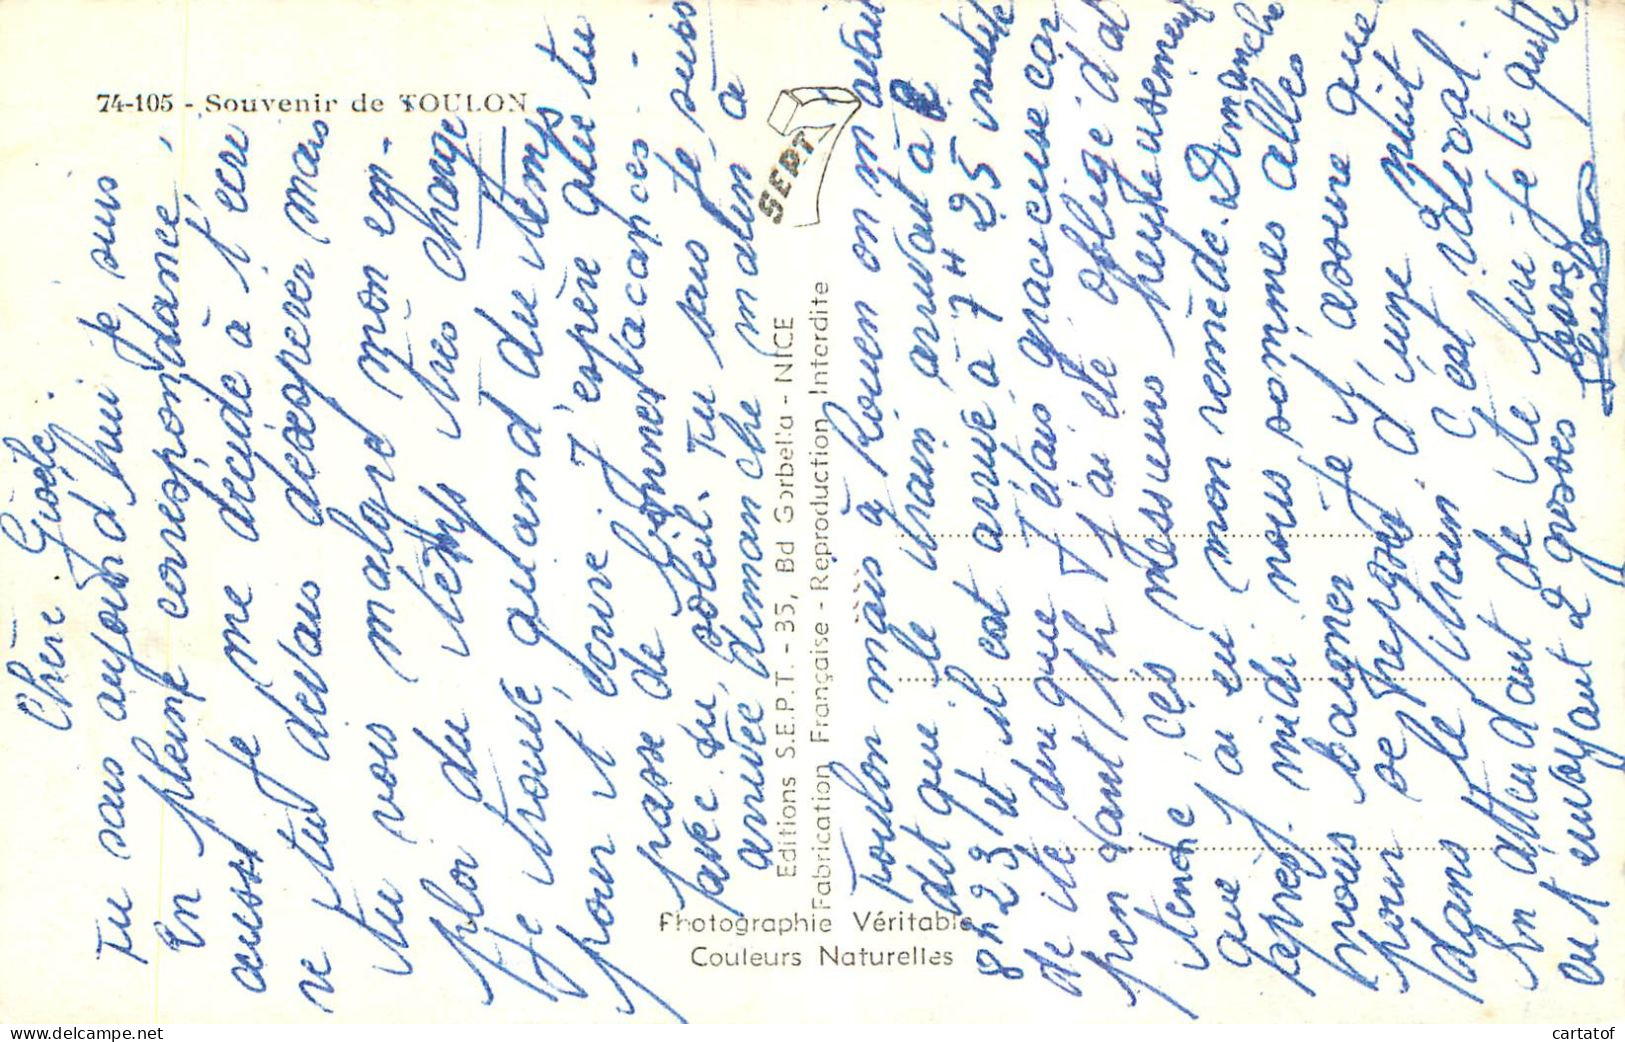 74-105 - Souvenir de TOULON
SEPT
Editions S.E.P.T. - 35, Bd Gorbella - NICE
Fabrication Française - Reproduction Interdite
Photographie Véritable
Couleurs Naturelles
Chère Gisèle,
Tu vois aujourd'hui je suis
En pleine correspondance,
aussi je me décide à t'écri
re tu devais désespérer mais
tu vois malgré mon em-
ploi du temps très chargé
Je trouve quand du temps
pour t'écrire J'espère que tu
passe de bonnes vacances -
avec du soleil. Tu sais je suis
arrivée dimanche matin à
Toulon mais à Rouen on m'avait
dit que le train arrivait à
8h23 et il est arrivé à 7H 25
de que J'étais gracieuse car
pendant 1h J'ai été obligé d'at
tendre ces messieurs heureusement
que j'ai eu mon remède. Dimanche
midi nous sommes allés
nous baigner je t'assure que
pour se d'une nuit
dans le train c'est idéal.
En attendant de te lire je te quitte
en t'envoyant 2 grosses bises
cartatof